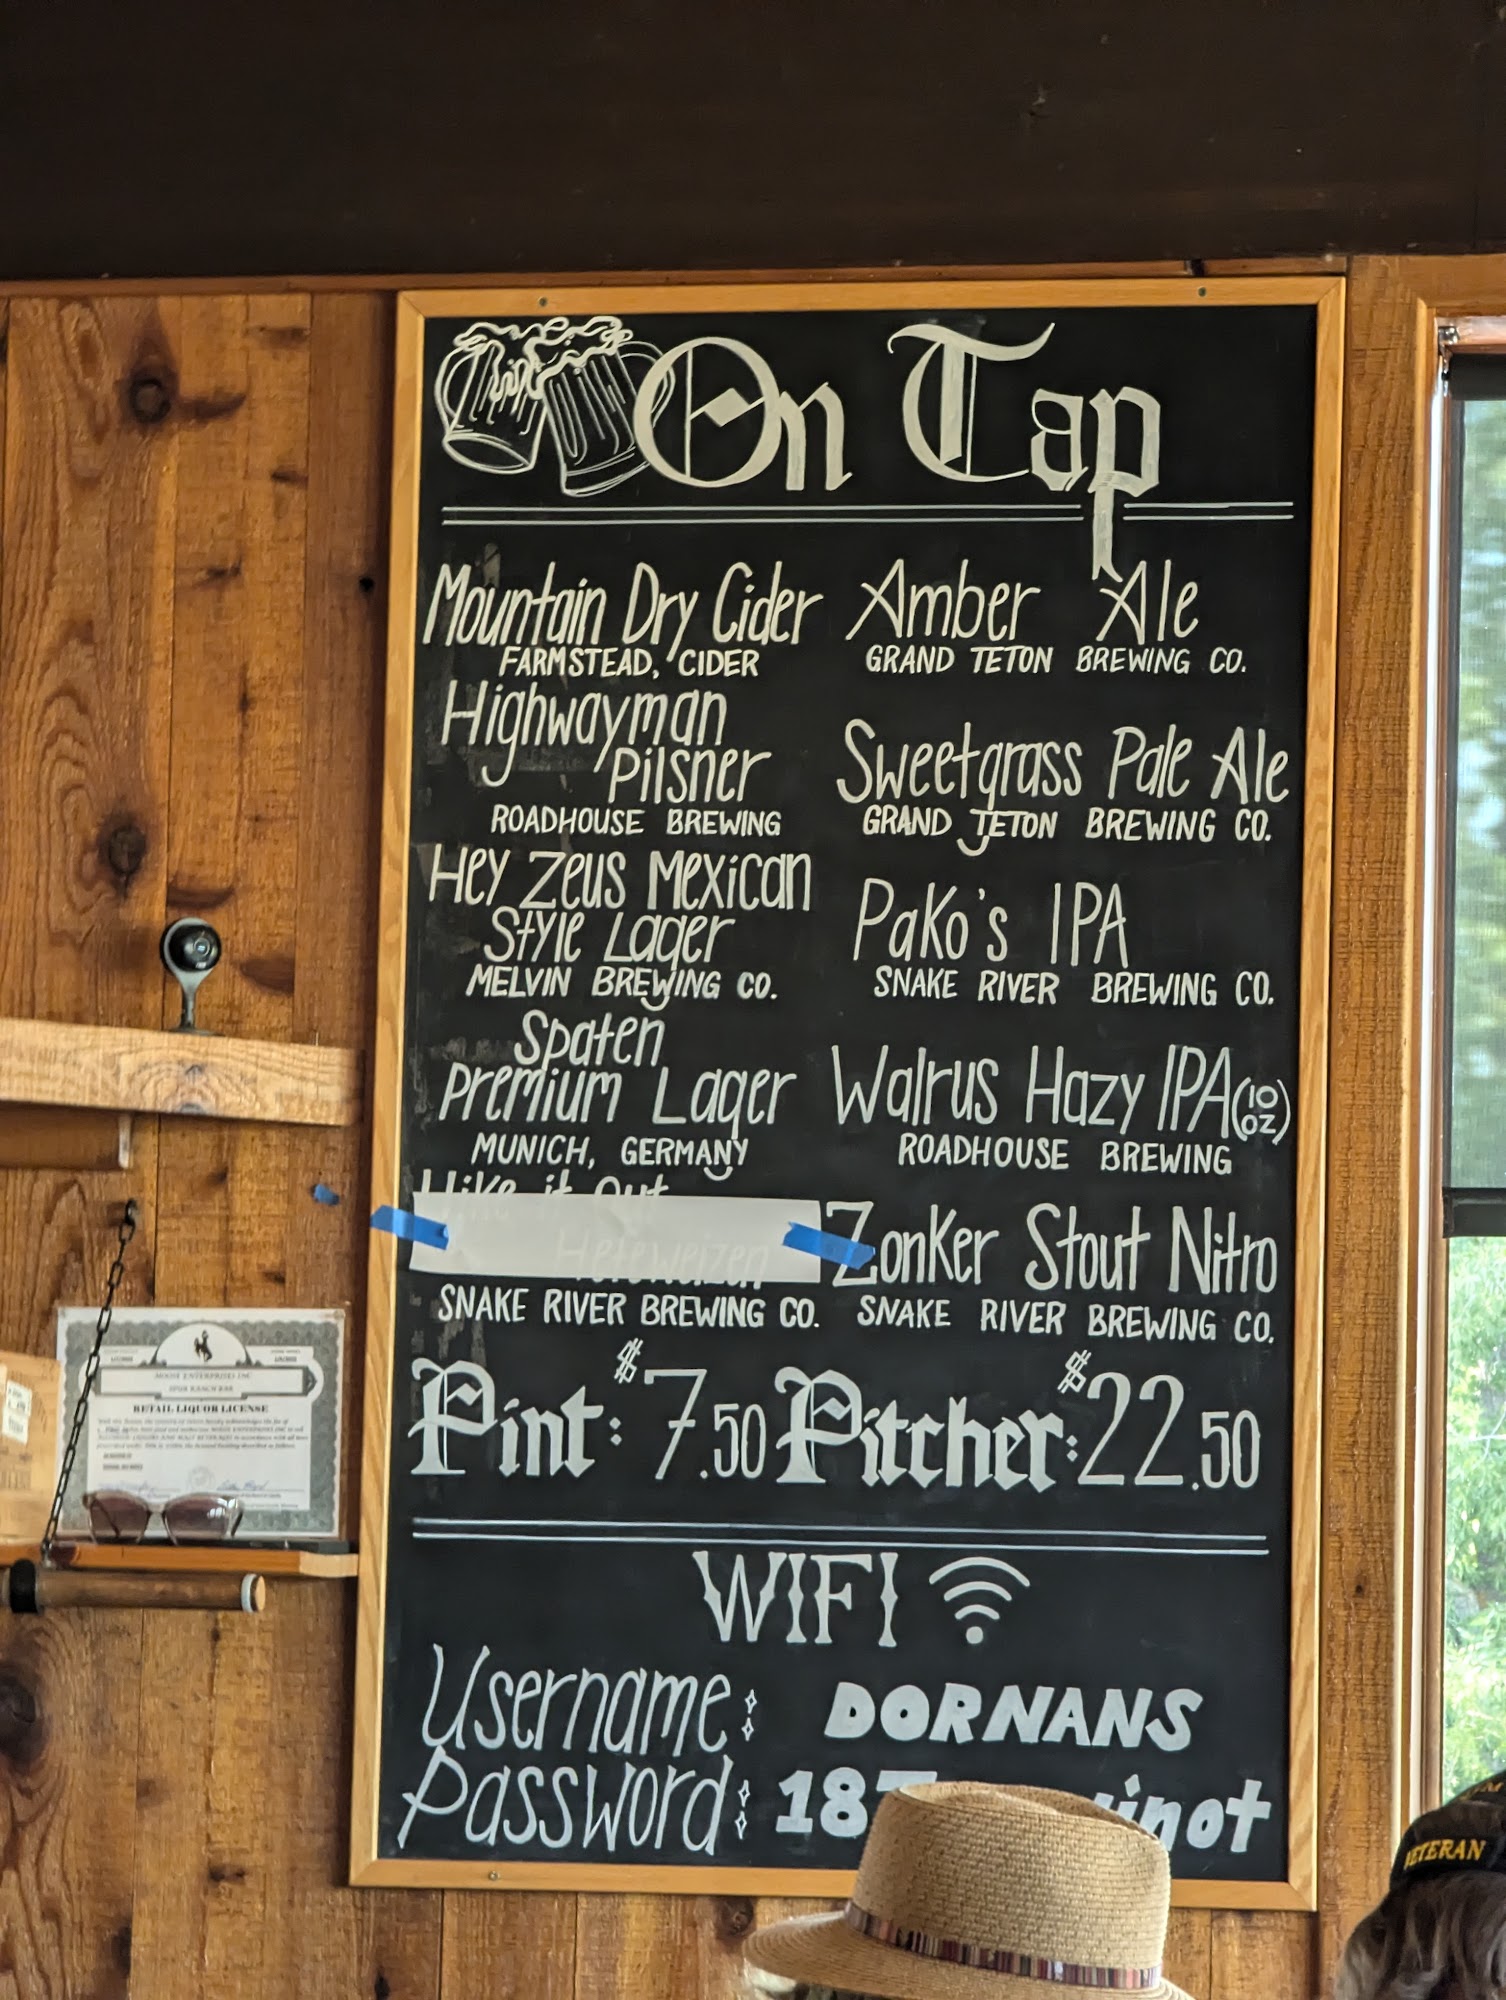 On Tap
Mountain Dry Cider
FARMSTEAD, CIDER
Highwayman
Pilsner
ROADHOUSE BREWING
Hey Zeus Mexican
Style Lager
MELVIN BREWING CO.
Spaten
Premium Lager
MUNICH, GERMANY
Hike it Out
Hefeweizen
SNAKE RIVER BREWING CO.
Amber Ale
GRAND TETON BREWING CO.
Sweetgrass Pale Ale
GRAND TETON BREWING CO.
PaKo's IPA
SNAKE RIVER BREWING CO.
Walrus Hazy IPA (10 oz)
ROADHOUSE BREWING
Zonker Stout Nitro
SNAKE RIVER BREWING CO.
Pint: $7.50 Pitcher: $22.50
WIFI
Username: DORNANS
Password:
RETAIL LIQUOR LICENSE
MOOSE ENTERPRISES INC
SPUR RANCH BAR
VETERAN